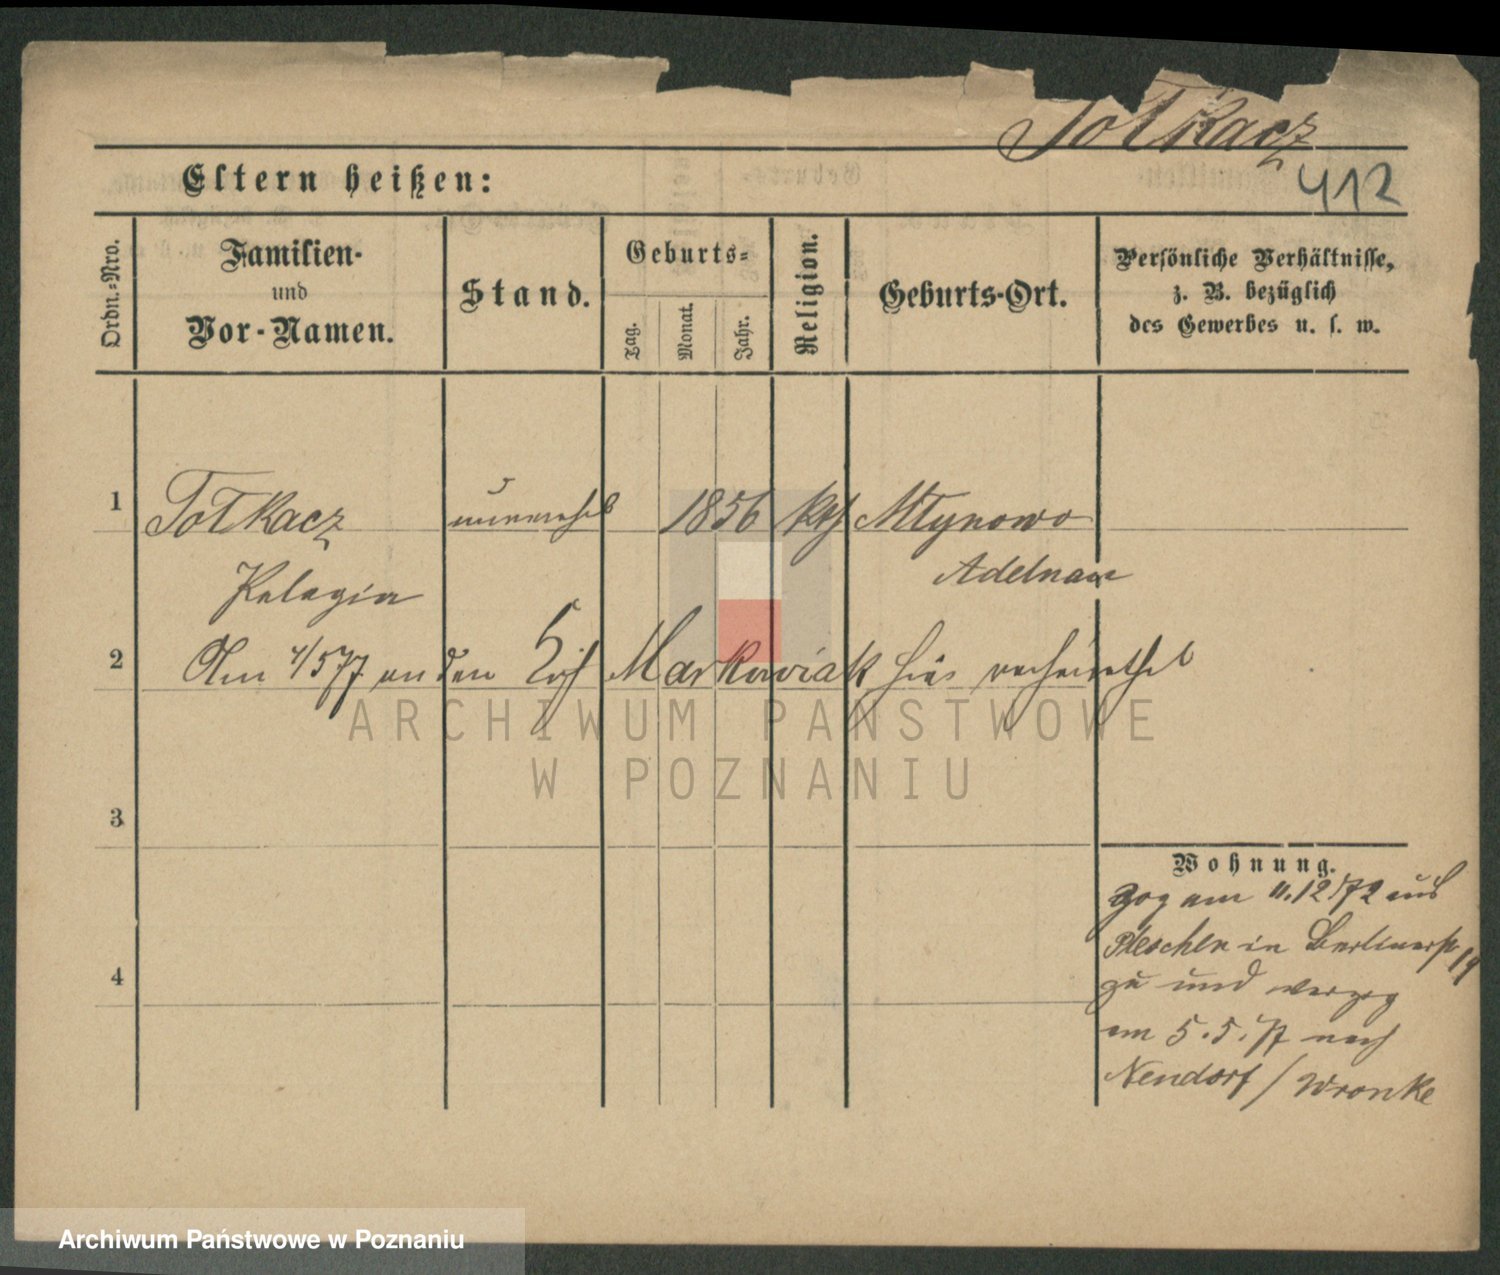 Totkacz
412
Eltern heißen:
Ordn.-Nro.
Familien-
und
Vor-Namen.
Stand.
Geburts-
Tag.
Monat.
Jahr.
Religion.
Geburts-Ort.
Persönliche Verhältnisse,
z. B. bezüglich
des Gewerbes u. s. w.
1 Totkacz unverehel 1856 kth Mlynowo
Pelagia Adelnau
2 Am 4/5 77 an den Markowiak hier verheirathet
3
Wohnung.
Zog am 11.12 72 aus
Pleschen in Berlinerstr 19
4
zu und verzog
am 5.5.77 nach
Neudorf / Wronke
ARCHIWUM PAŃSTWOWE
W POZNANIU
Archiwum Państwowe w Poznaniu